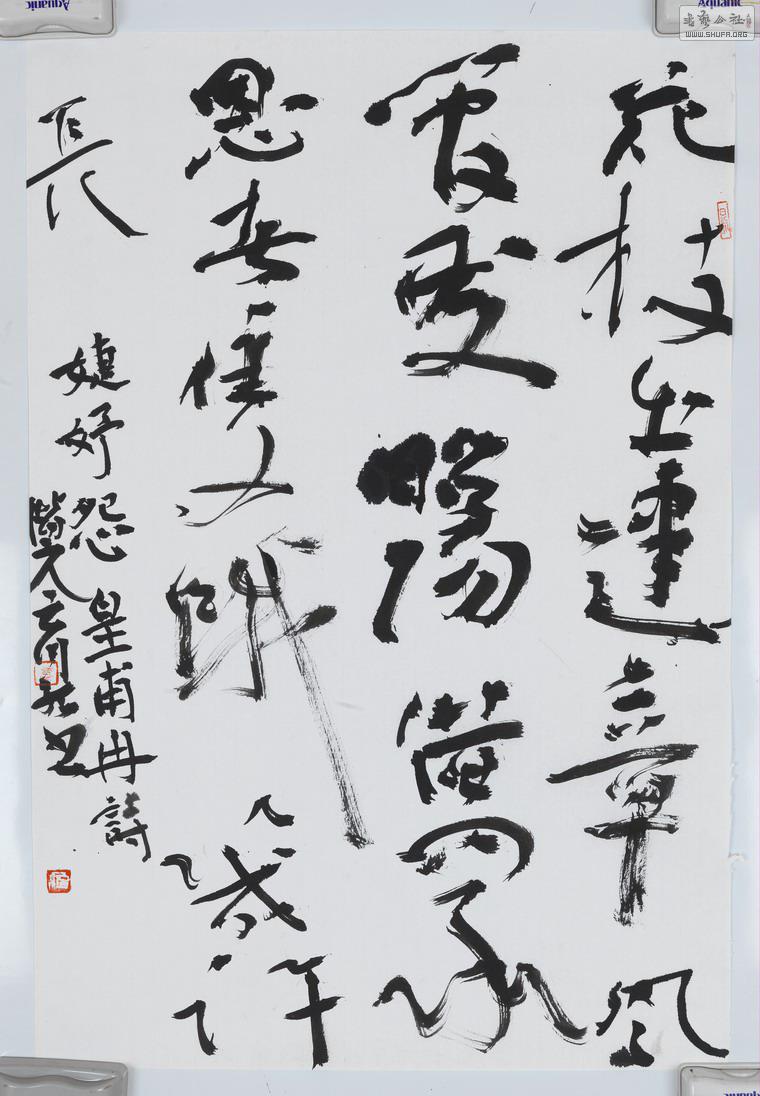 花枝出建章風
管發昭陽借問承
恩者雙蛾幾許
長
婕妤怨皇甫冉詩
書藝公社
WWW.SHUFA.ORG
Aquanic
Aquanic